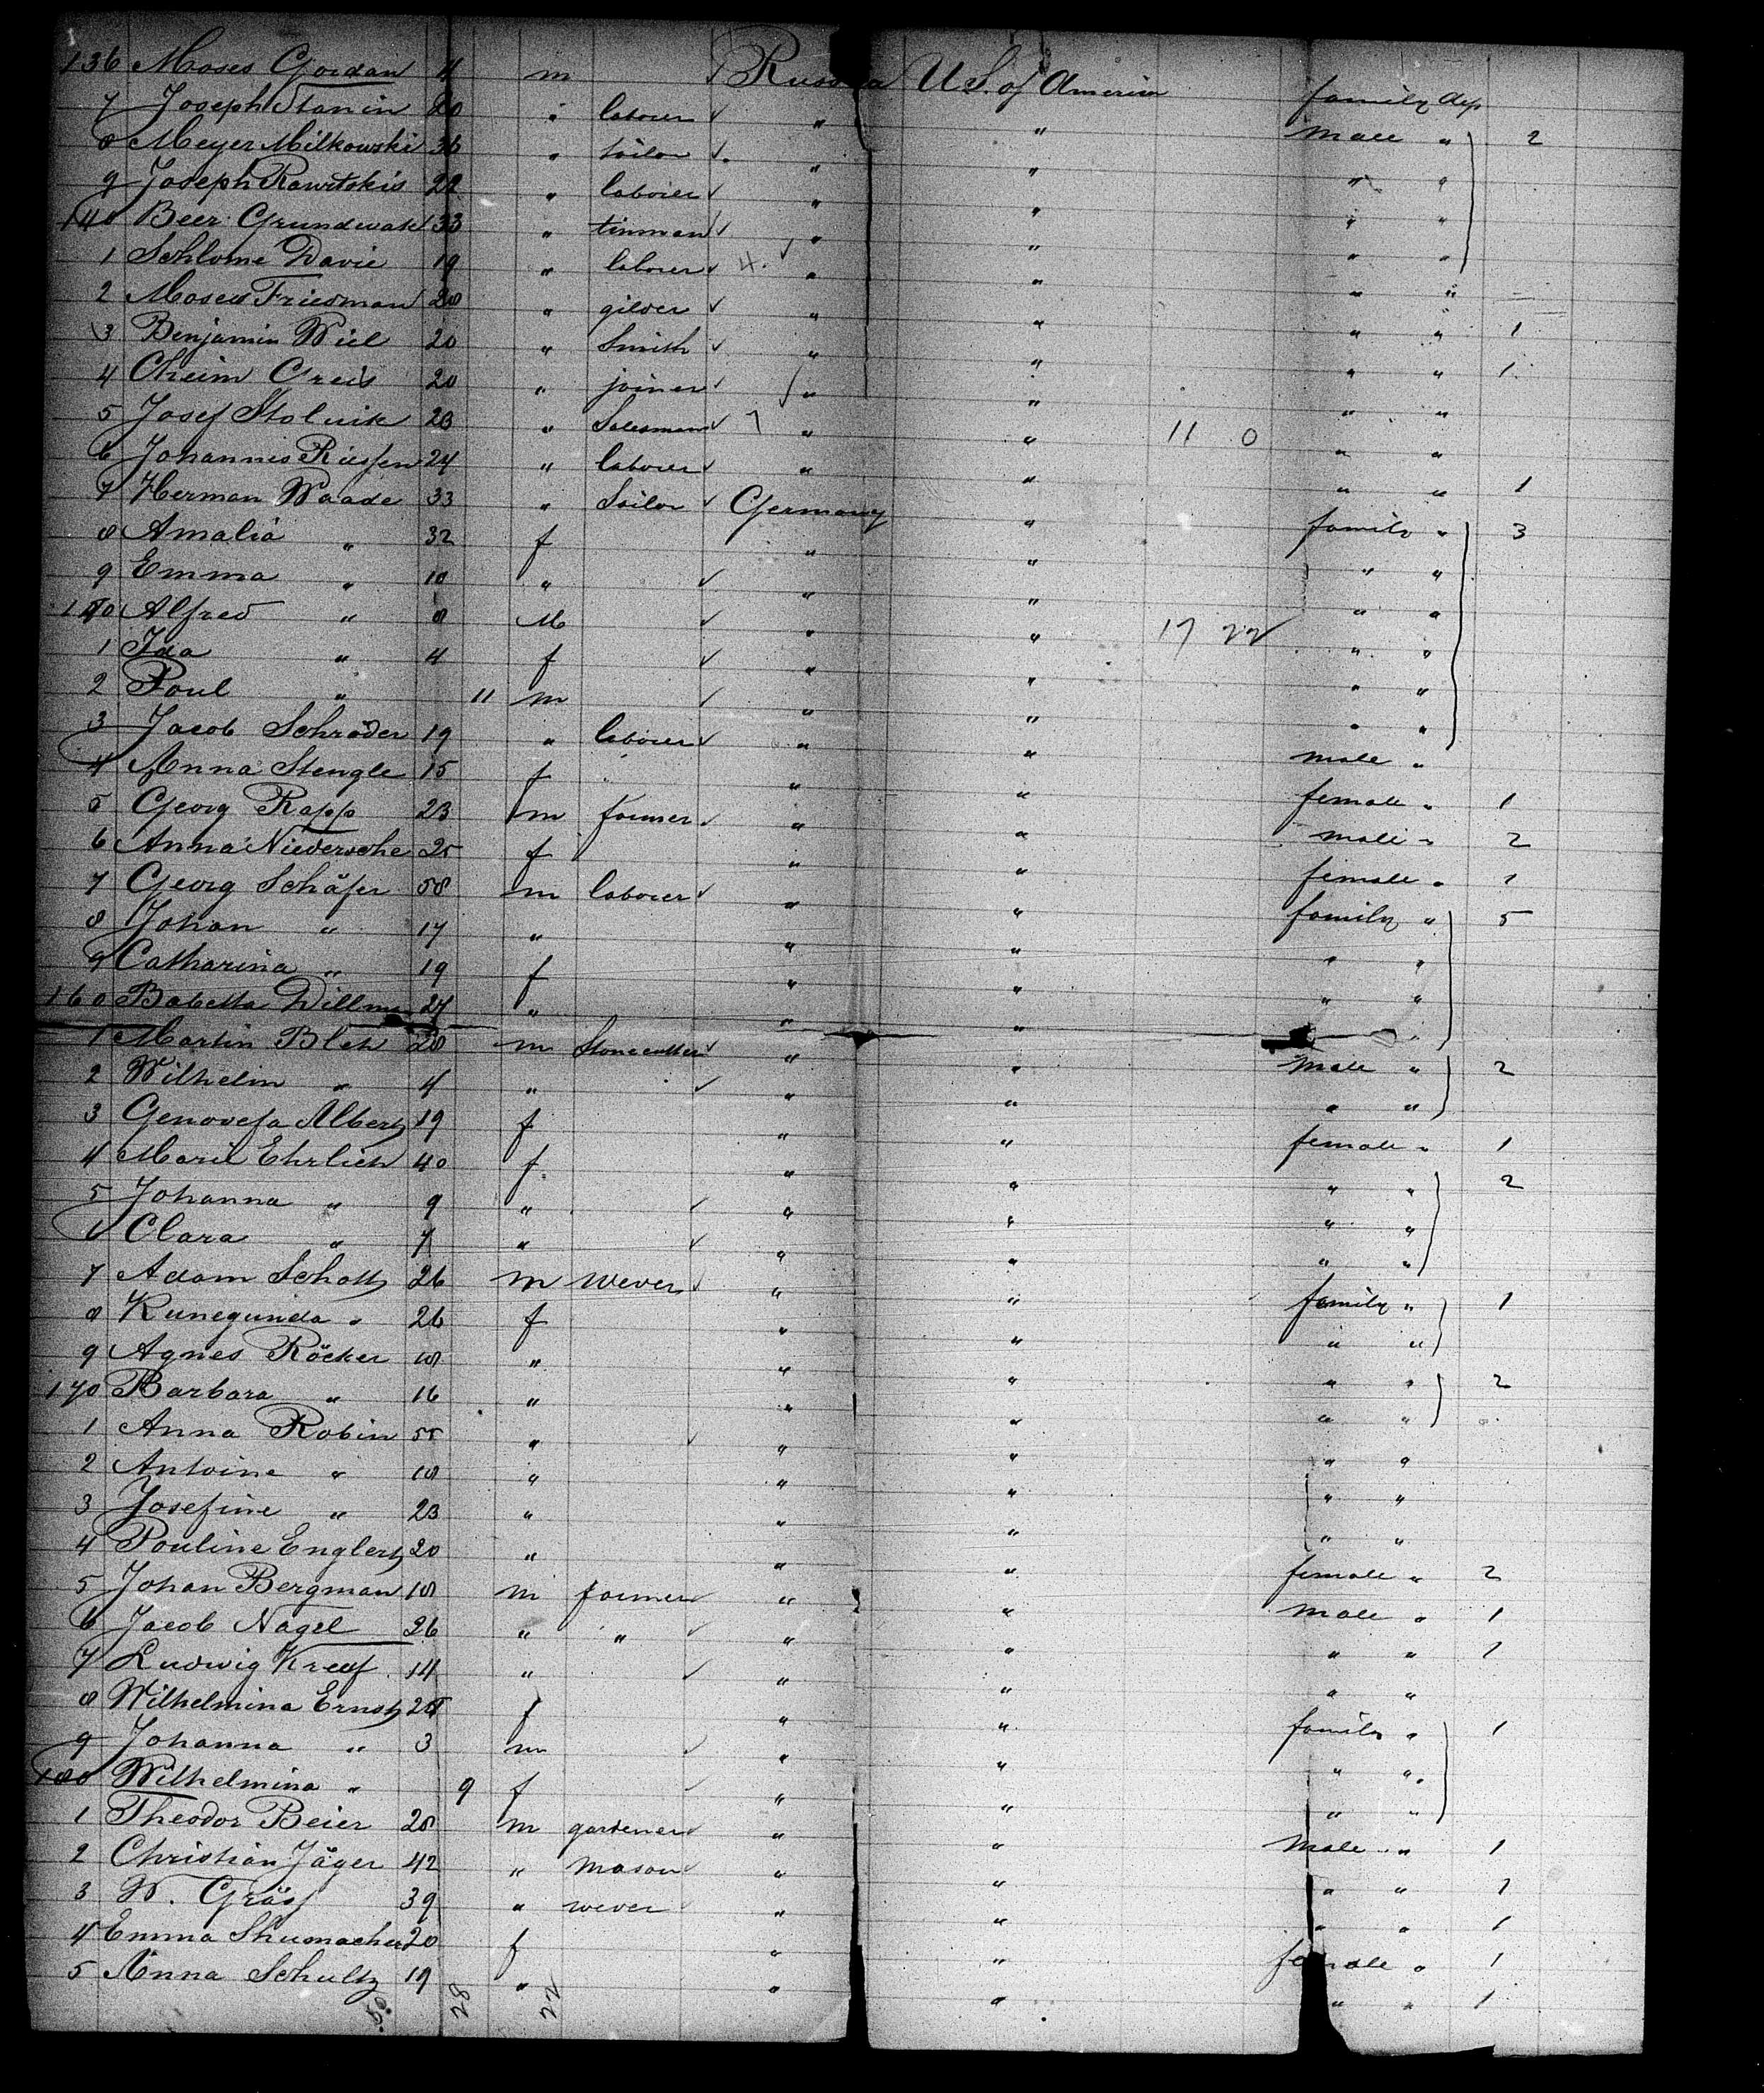 136 Moses Gordan 11 m Russia U.S. of America family dep
7 Joseph Stanin 20 " laborer " " male " 2
8 Meyer Milkowski 36 " tailor " " " "
9 Joseph Rawitskis 22 " laborer " " " "
140 Beer Grundwald 33 " tinman " " " "
1 Schlome Davie 19 " laborer 4. " " " "
2 Moses Friedman 20 " gilder " " " " 1
3 Benjamin Wiel 20 " Smith " " " " 1
4 Cheim Creis 20 " joiner " " " "
5 Josef Stolnik 23 " Salesman 7 " " 11 0 " "
6 Johannes Riessen 24 " laborer " " " " 1
7 Herman Waade 33 " Sailor Germany " family " 3
8 Amalia " 32 f " " " "
9 Emma " 10 " " " " "
150 Alfred " 8 M " " 17 22 " "
1 Ida " 4 f " " " "
2 Poul " 11 m " " " "
3 Jacob Schrøder 19 " laborer " " male "
4 Anna Stengle 15 f " " female " 1
5 Georg Rapp 23 m farmer " " male " 2
6 Anna Niedersche 25 f " " female " 1
7 Georg Schäfer 58 m laborer " " family " 5
8 Johan " 17 " " " " "
9 Catharina " 19 f " " " "
160 Babetta Dillm 27 " " " "
1 Martin Bleh 28 m Stonecutter " " male " 2
2 Wilhelm " 4 " " " " "
3 Genovefa Albertz 19 f " " female " 1
4 Marie Ehrlich 40 f. " " " " 2
5 Johanna " 9 " " " " "
6 Clara " 7 " " " " "
7 Adam Scholtz 26 m wever " " family " 1
8 Kunegunda " 26 f " " " "
9 Agnes Röcker 18 " " " " " 2
170 Barbara " 16 " " " " "
1 Anna Robin 55 " " " " "
2 Antoine " 18 " " " " "
3 Josefine " 23 " " " " "
4 Pouline Englertz 20 " " " female " 2
5 Johan Bergman 18 m farmer " " male " 1
6 Jacob Nagel 26 " " " " " " 1
7 Ludwig Kreuf 14 " " " " "
8 Wilhelmina Ernstz 28 f " " family " 1
9 Johanna " 3 m " " " "
180 Wilhelmina " 9 f " " " "
1 Theodor Beier 28 m gardener " " male " 1
2 Christian Jäger 42 " mason " " " " 1
3 W. Gräsf 39 " wever " " " " 1
4 Emma Shumacher 20 f " " female " 1
5 Anna Schultz 19 " " " " " 1
28 22